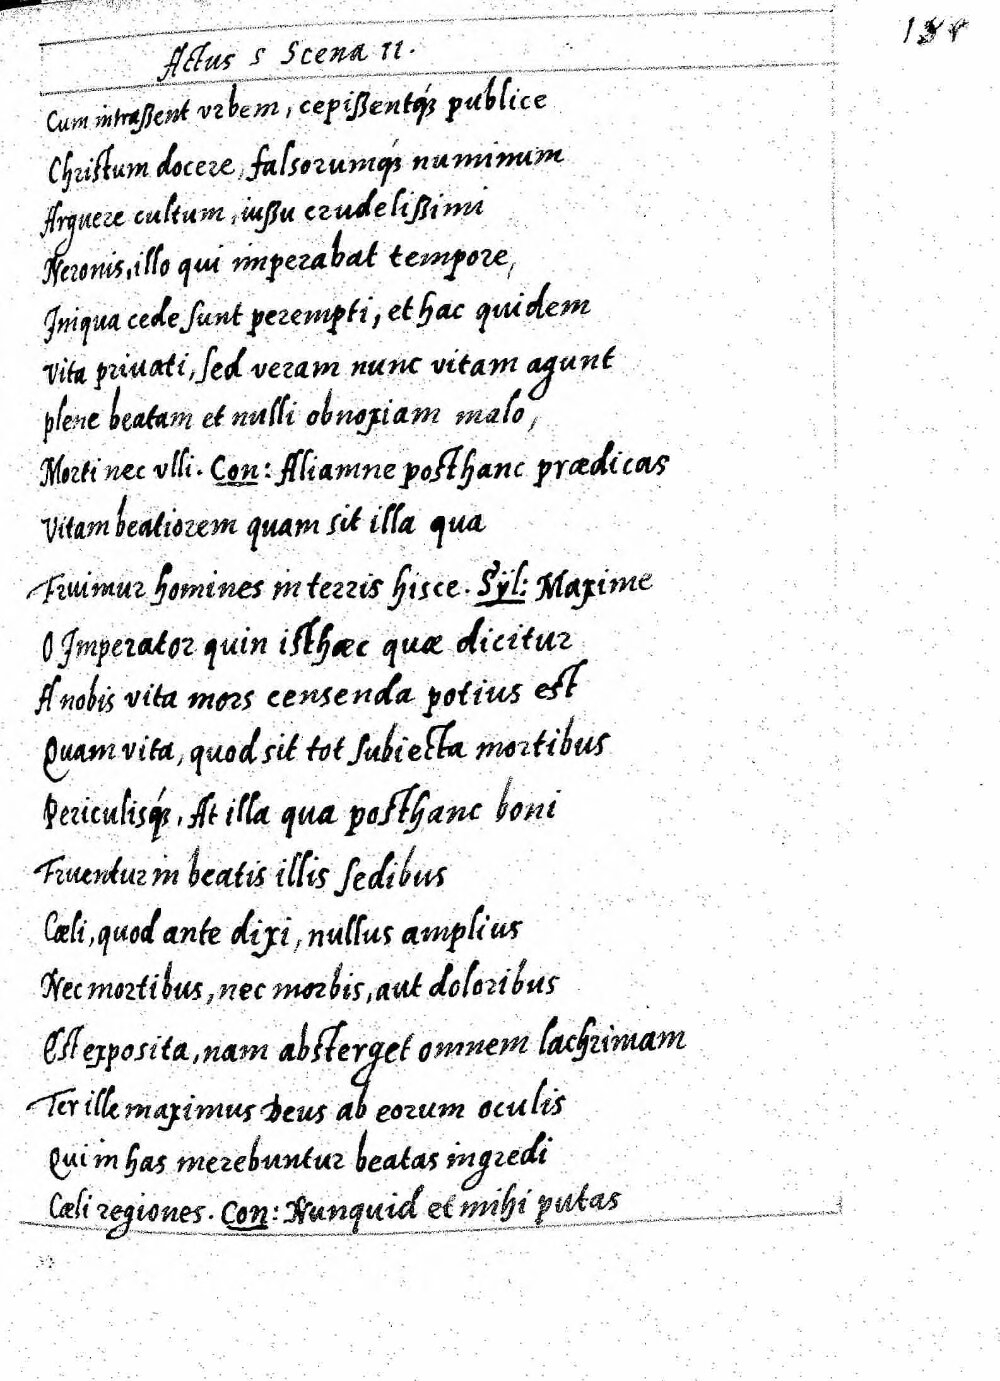 Actus 5 Scena 11.
Cum intraßent vrbem, cepißentq́ꝫ publice
Christum docere, falsorumq́ꝫ numinum
Arguere cultum, iußu crudelißimi
Neronis, illo qui imperabat tempore,
Iniqua cede sunt perempti, et hac quidem
vita priuati, sed veram nunc vitam agunt
plene beatam et nulli obnoxiam malo,
Morti nec vlli. Con: Aliamne posthanc prædicas
Vitam beatiorem quam sit illa qua
Fruimur homines in terris hisce. Syl: Maxime
O Imperator quin isthæc quæ dicitur
A nobis vita mors censenda potius est
Quam vita, quod sit tot subiecta mortibus
Periculisq́ꝫ, At illa qua posthanc boni
Fruentur in beatis illis sedibus
Cæli, quod ante dixi, nullus amplius
Nec mortibus, nec morbis, aut doloribus
Est exposita, nam absterget omnem lachrimam
Ter ille maximus Deus ab eorum oculis
Qui in has merebuntur beatas ingredi
Cæli regiones. Con: Nunquid et mihi putas